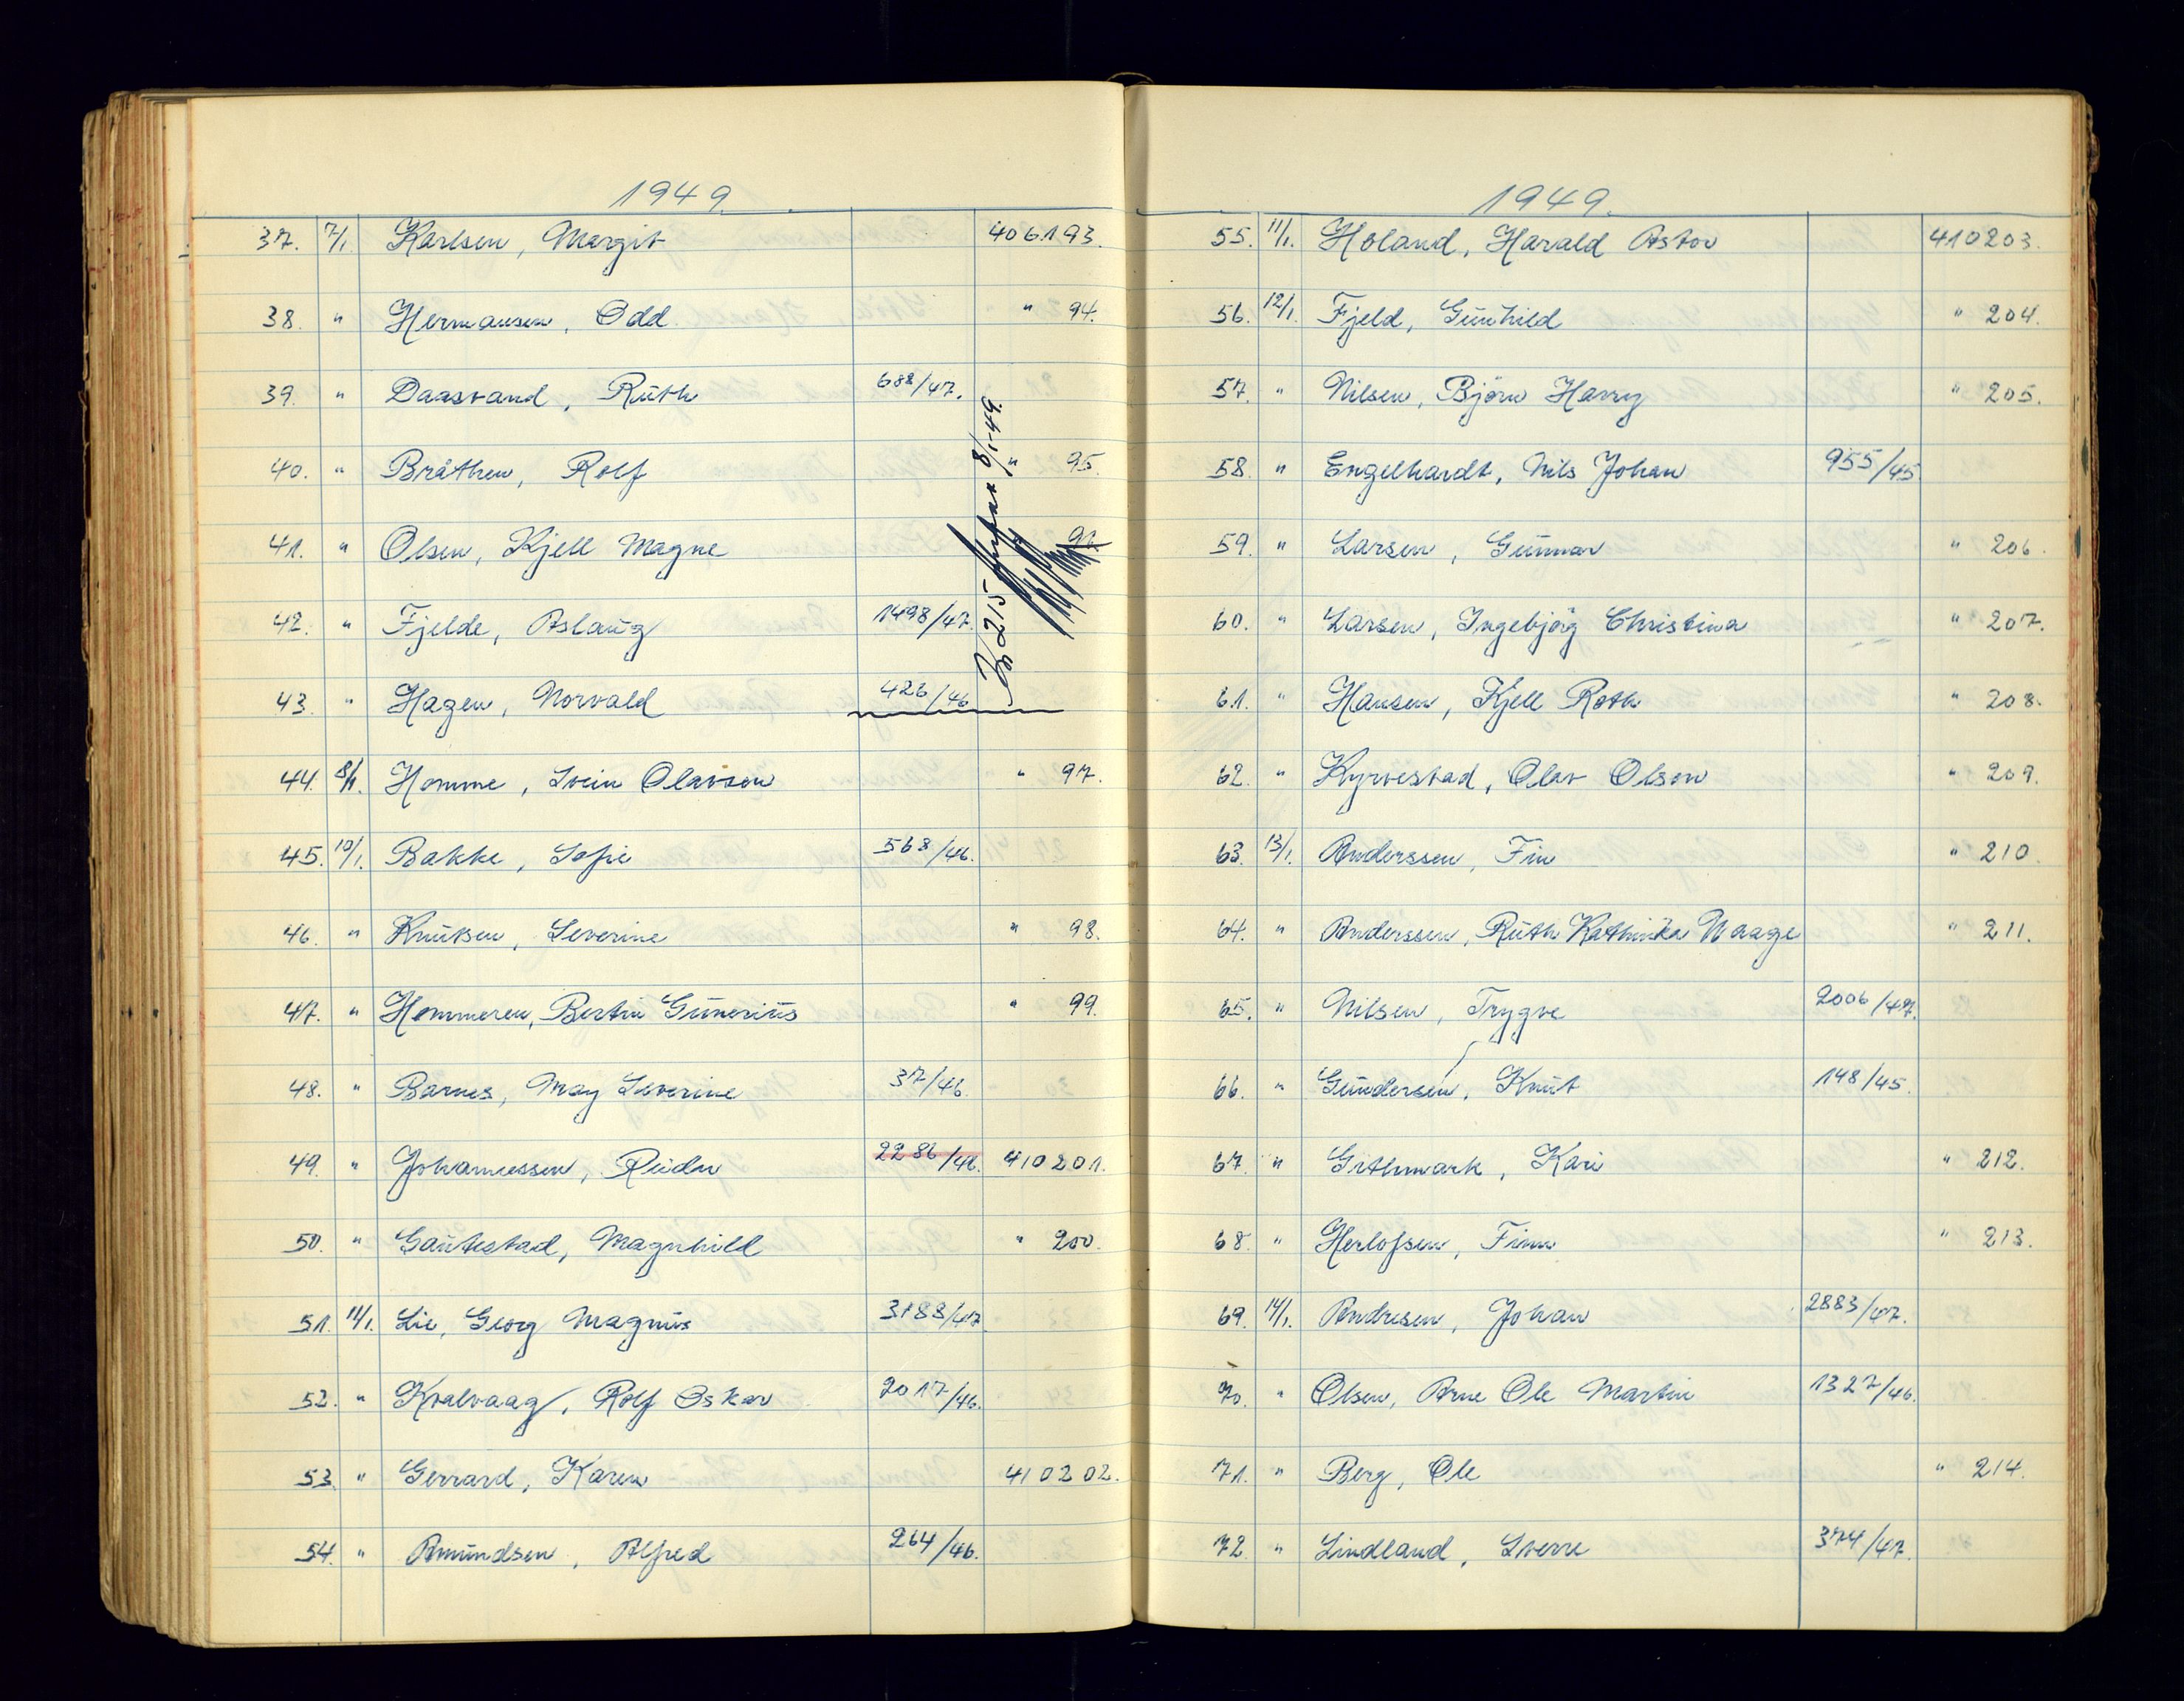 1949.
37. 7/1. Karlsen, Margit 406193.
38. " Hermansen, Odd. " 94.
39. " Daasvand, Ruth 688/47.
40. " Bråthen, Rolf " 95.
41. " Olsen, Kjell Magne 96.
42. " Fjelde, Aslaug 1498/47.
43. " Hagen, Norvald 426/46
Kr 215 8/1-49.
44. 8/1. Homme, Svein Olavson " 97.
45. 10/1. Bakke, Sofie 568/46.
46. " Knutsen, Severine " 98.
47. " Hommeren, Bertin Gunerius " 99.
48. " Barnes, May Severine 37/46.
49. " Johannessen, Reidu 2286/46. 410201.
50. " Gautestad, Magnhild " 200.
51. 11/1. Lie, Georg Magnus 3188/47
52. " Kvalvaag, Rolf Oskar 2017/46.
53. " Gerrard, Karen 410202.
54. " Amundsen, Alfred 264/46.
1949.
55. 11/1. Holand, Harald Astor 410203.
56. 12/1. Fjeld, Gunhild " 204.
57. " Nilsen, Björn Harry " 205.
58. " Engelhardt, Nils Johan 955/45
59. " Larsen, Gunnar " 206.
60. " Larsen, Ingebjörg Christina " 207.
61. " Hansen, Kjell Roth " 208.
62. " Kyrvestad, Olav Olson " 209.
63. 13/1. Anderssen, Fin " 210
64. " Anderssen, Ruth Kathinka Naage " 211.
65. " Nilsen, Trygve 2006/47.
66. " Gundersen, Knut 148/45.
67. " Grthmark, Kari " 212.
68. " Herlofsen, Finn " 213.
69. 14/1. Andresen, Johan 2883/47.
70. " Olsen, Arne Ole Martin 1327/46.
71. " Berg, Ole " 214.
72. " Lindland, Sverre 374/47.